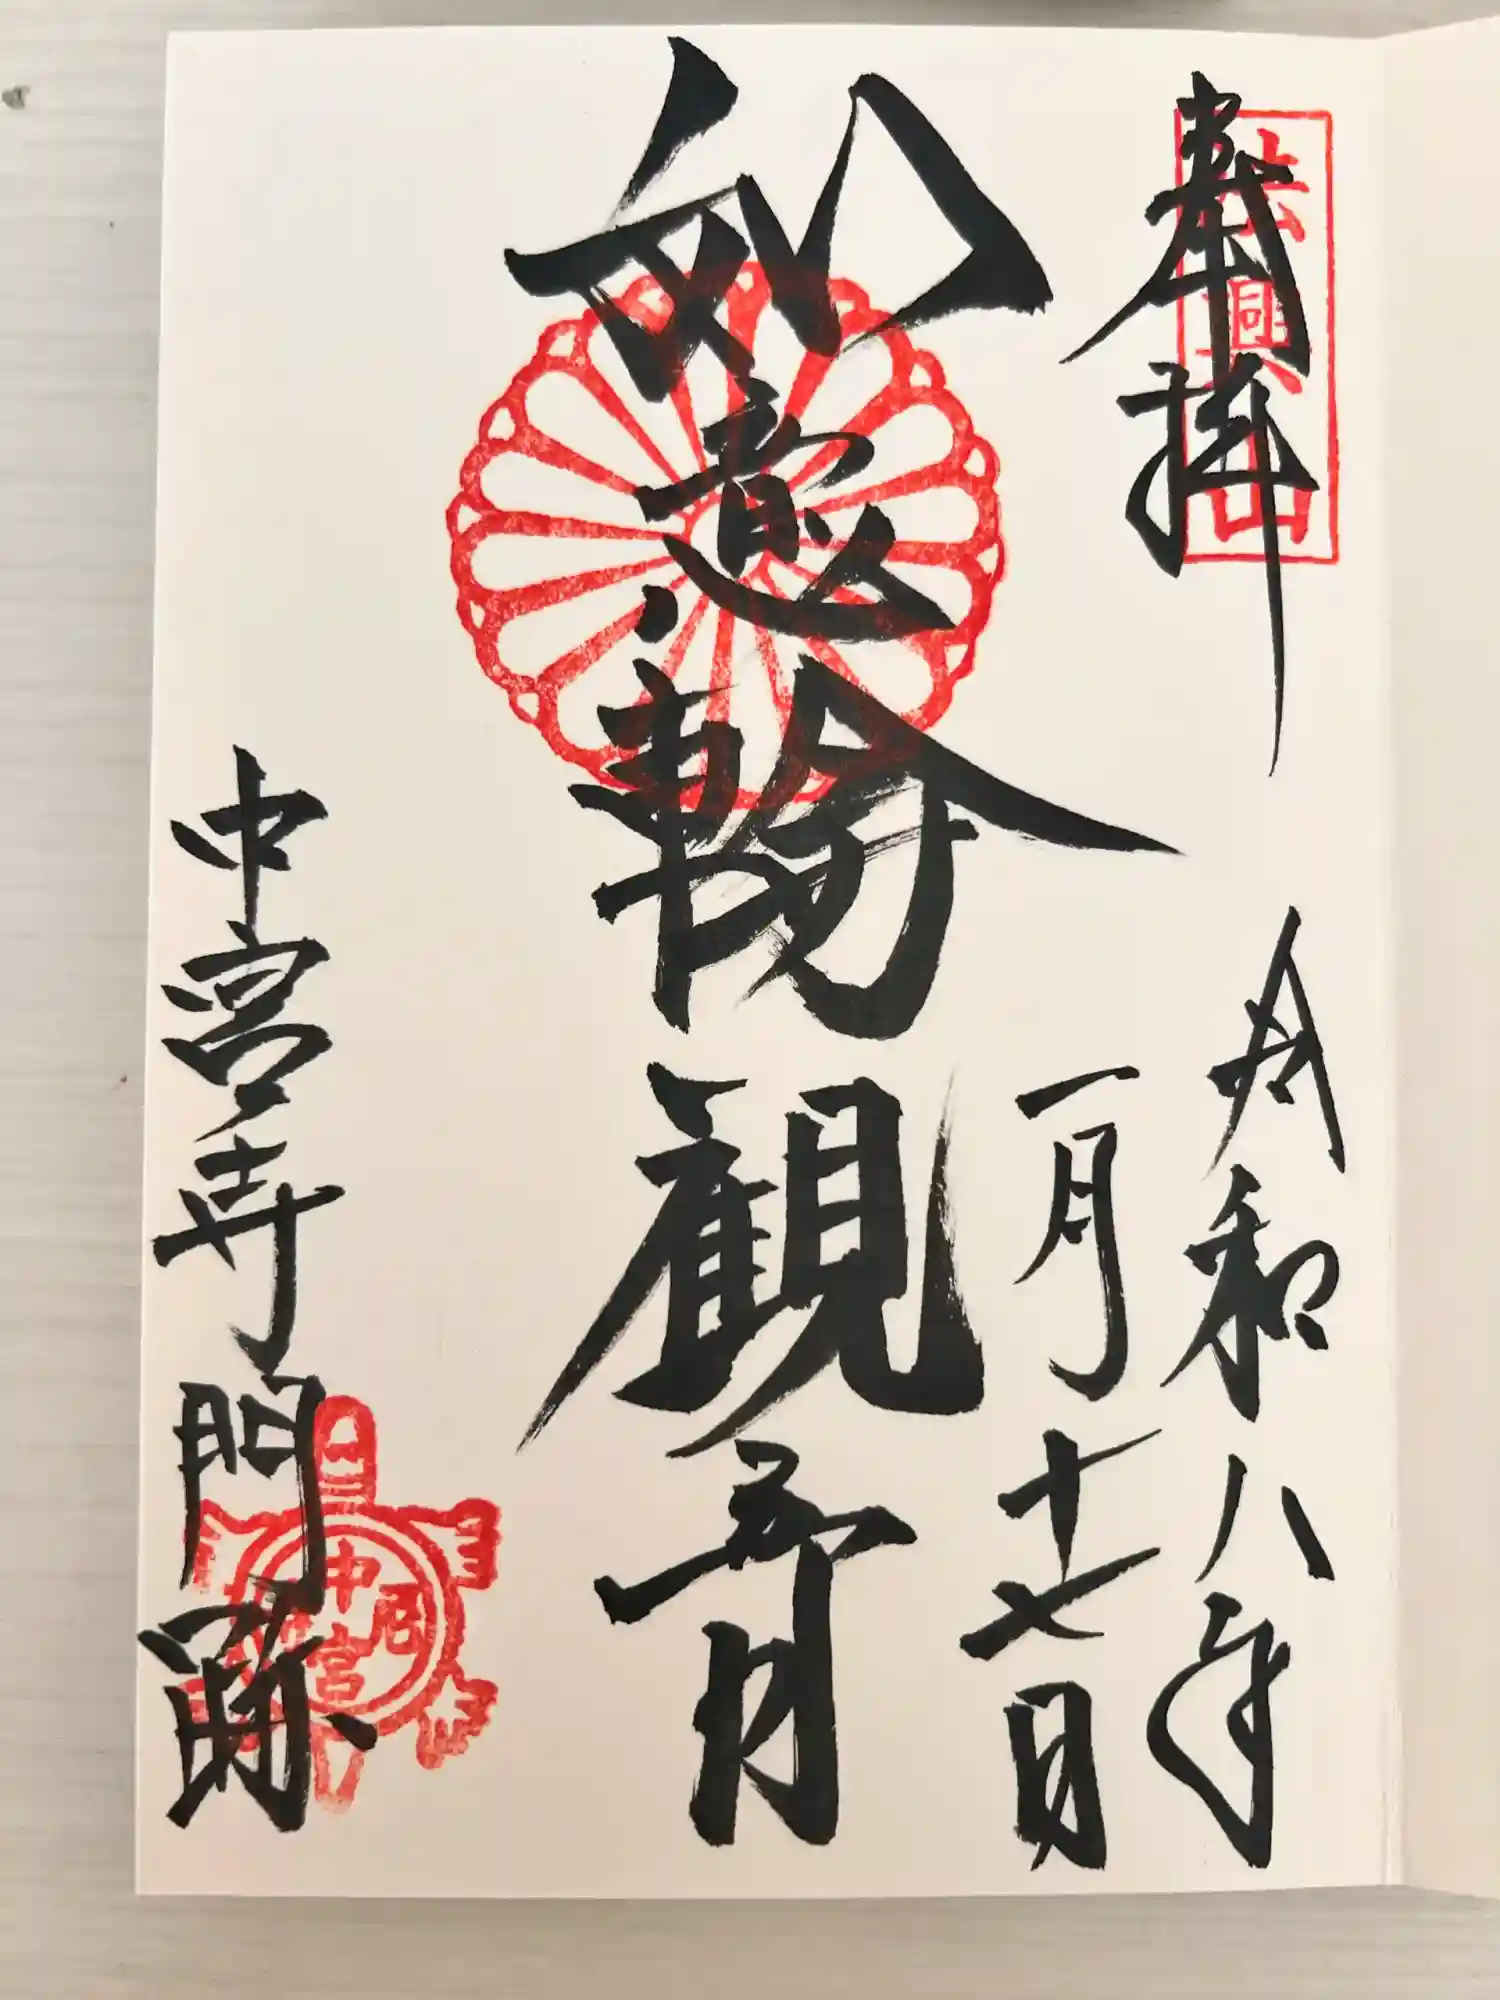 奉拝
法興山
令和八年
一月十七日
如意輪
観音
中宮寺門跡
中宮